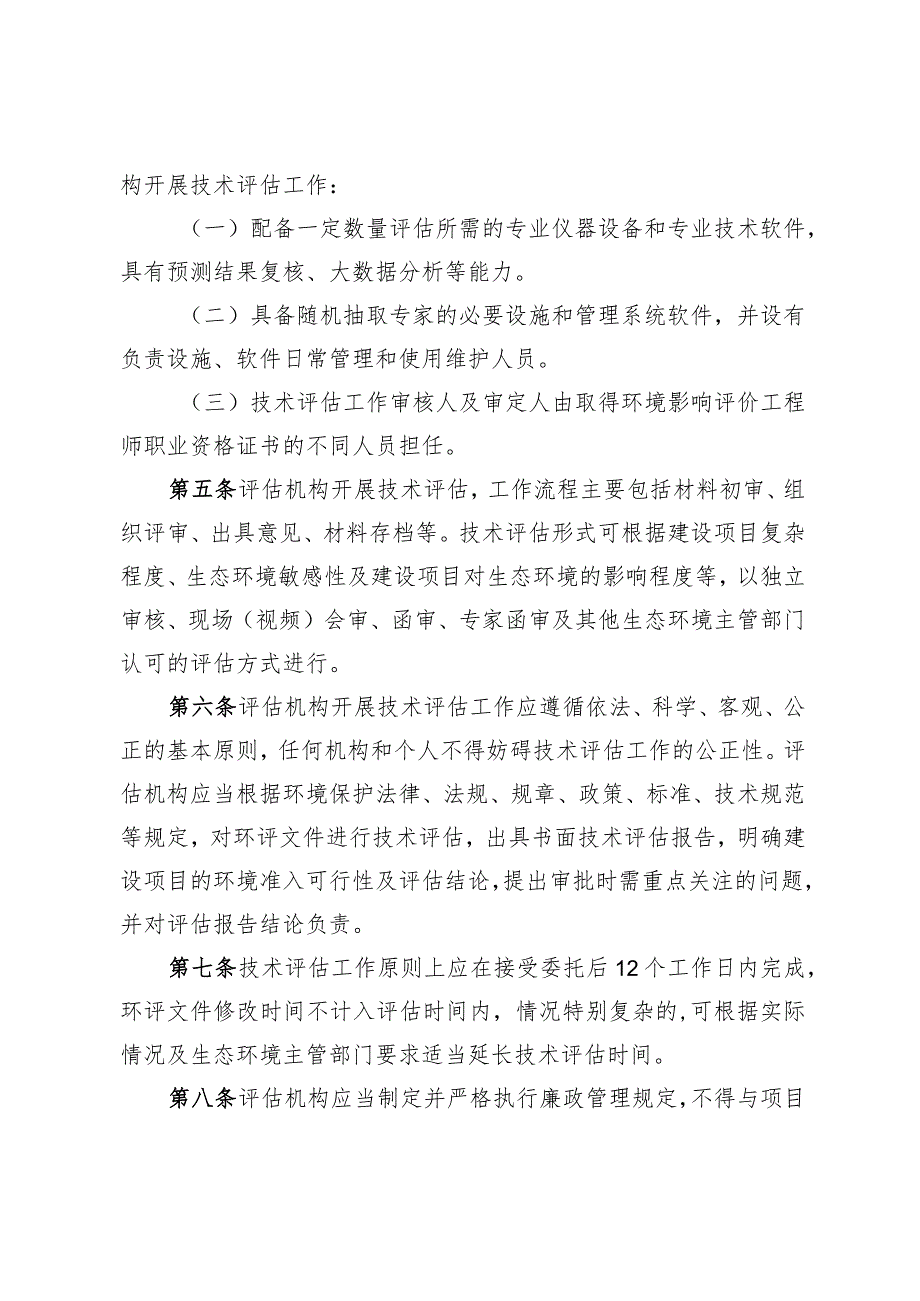 构开展技术评估工作：
（一）配备一定数量评估所需的专业仪器设备和专业技术软件，
具有预测结果复核、大数据分析等能力。
（二）具备随机抽取专家的必要设施和管理系统软件，并设有
负责设施、软件日常管理和使用维护人员。
（三）技术评估工作审核人及审定人由取得环境影响评价工程
师职业资格证书的不同人员担任。
第五条评估机构开展技术评估，工作流程主要包括材料初审、组
织评审、出具意见、材料存档等。技术评估形式可根据建设项目复杂
程度、生态环境敏感性及建设项目对生态环境的影响程度等，以独立
审核、现场（视频）会审、函审、专家函审及其他生态环境主管部门
认可的评估方式进行。
第六条评估机构开展技术评估工作应遵循依法、科学、客观、公
正的基本原则，任何机构和个人不得妨碍技术评估工作的公正性。评
估机构应当根据环境保护法律、法规、规章、政策、标准、技术规范
等规定，对环评文件进行技术评估，出具书面技术评估报告，明确建
设项目的环境准入可行性及评估结论，提出审批时需重点关注的问题，
并对评估报告结论负责。
第七条技术评估工作原则上应在接受委托后12个工作日内完成，
环评文件修改时间不计入评估时间内，情况特别复杂的,可根据实际
情况及生态环境主管部门要求适当延长技术评估时间。
第八条评估机构应当制定并严格执行廉政管理规定，不得与项目